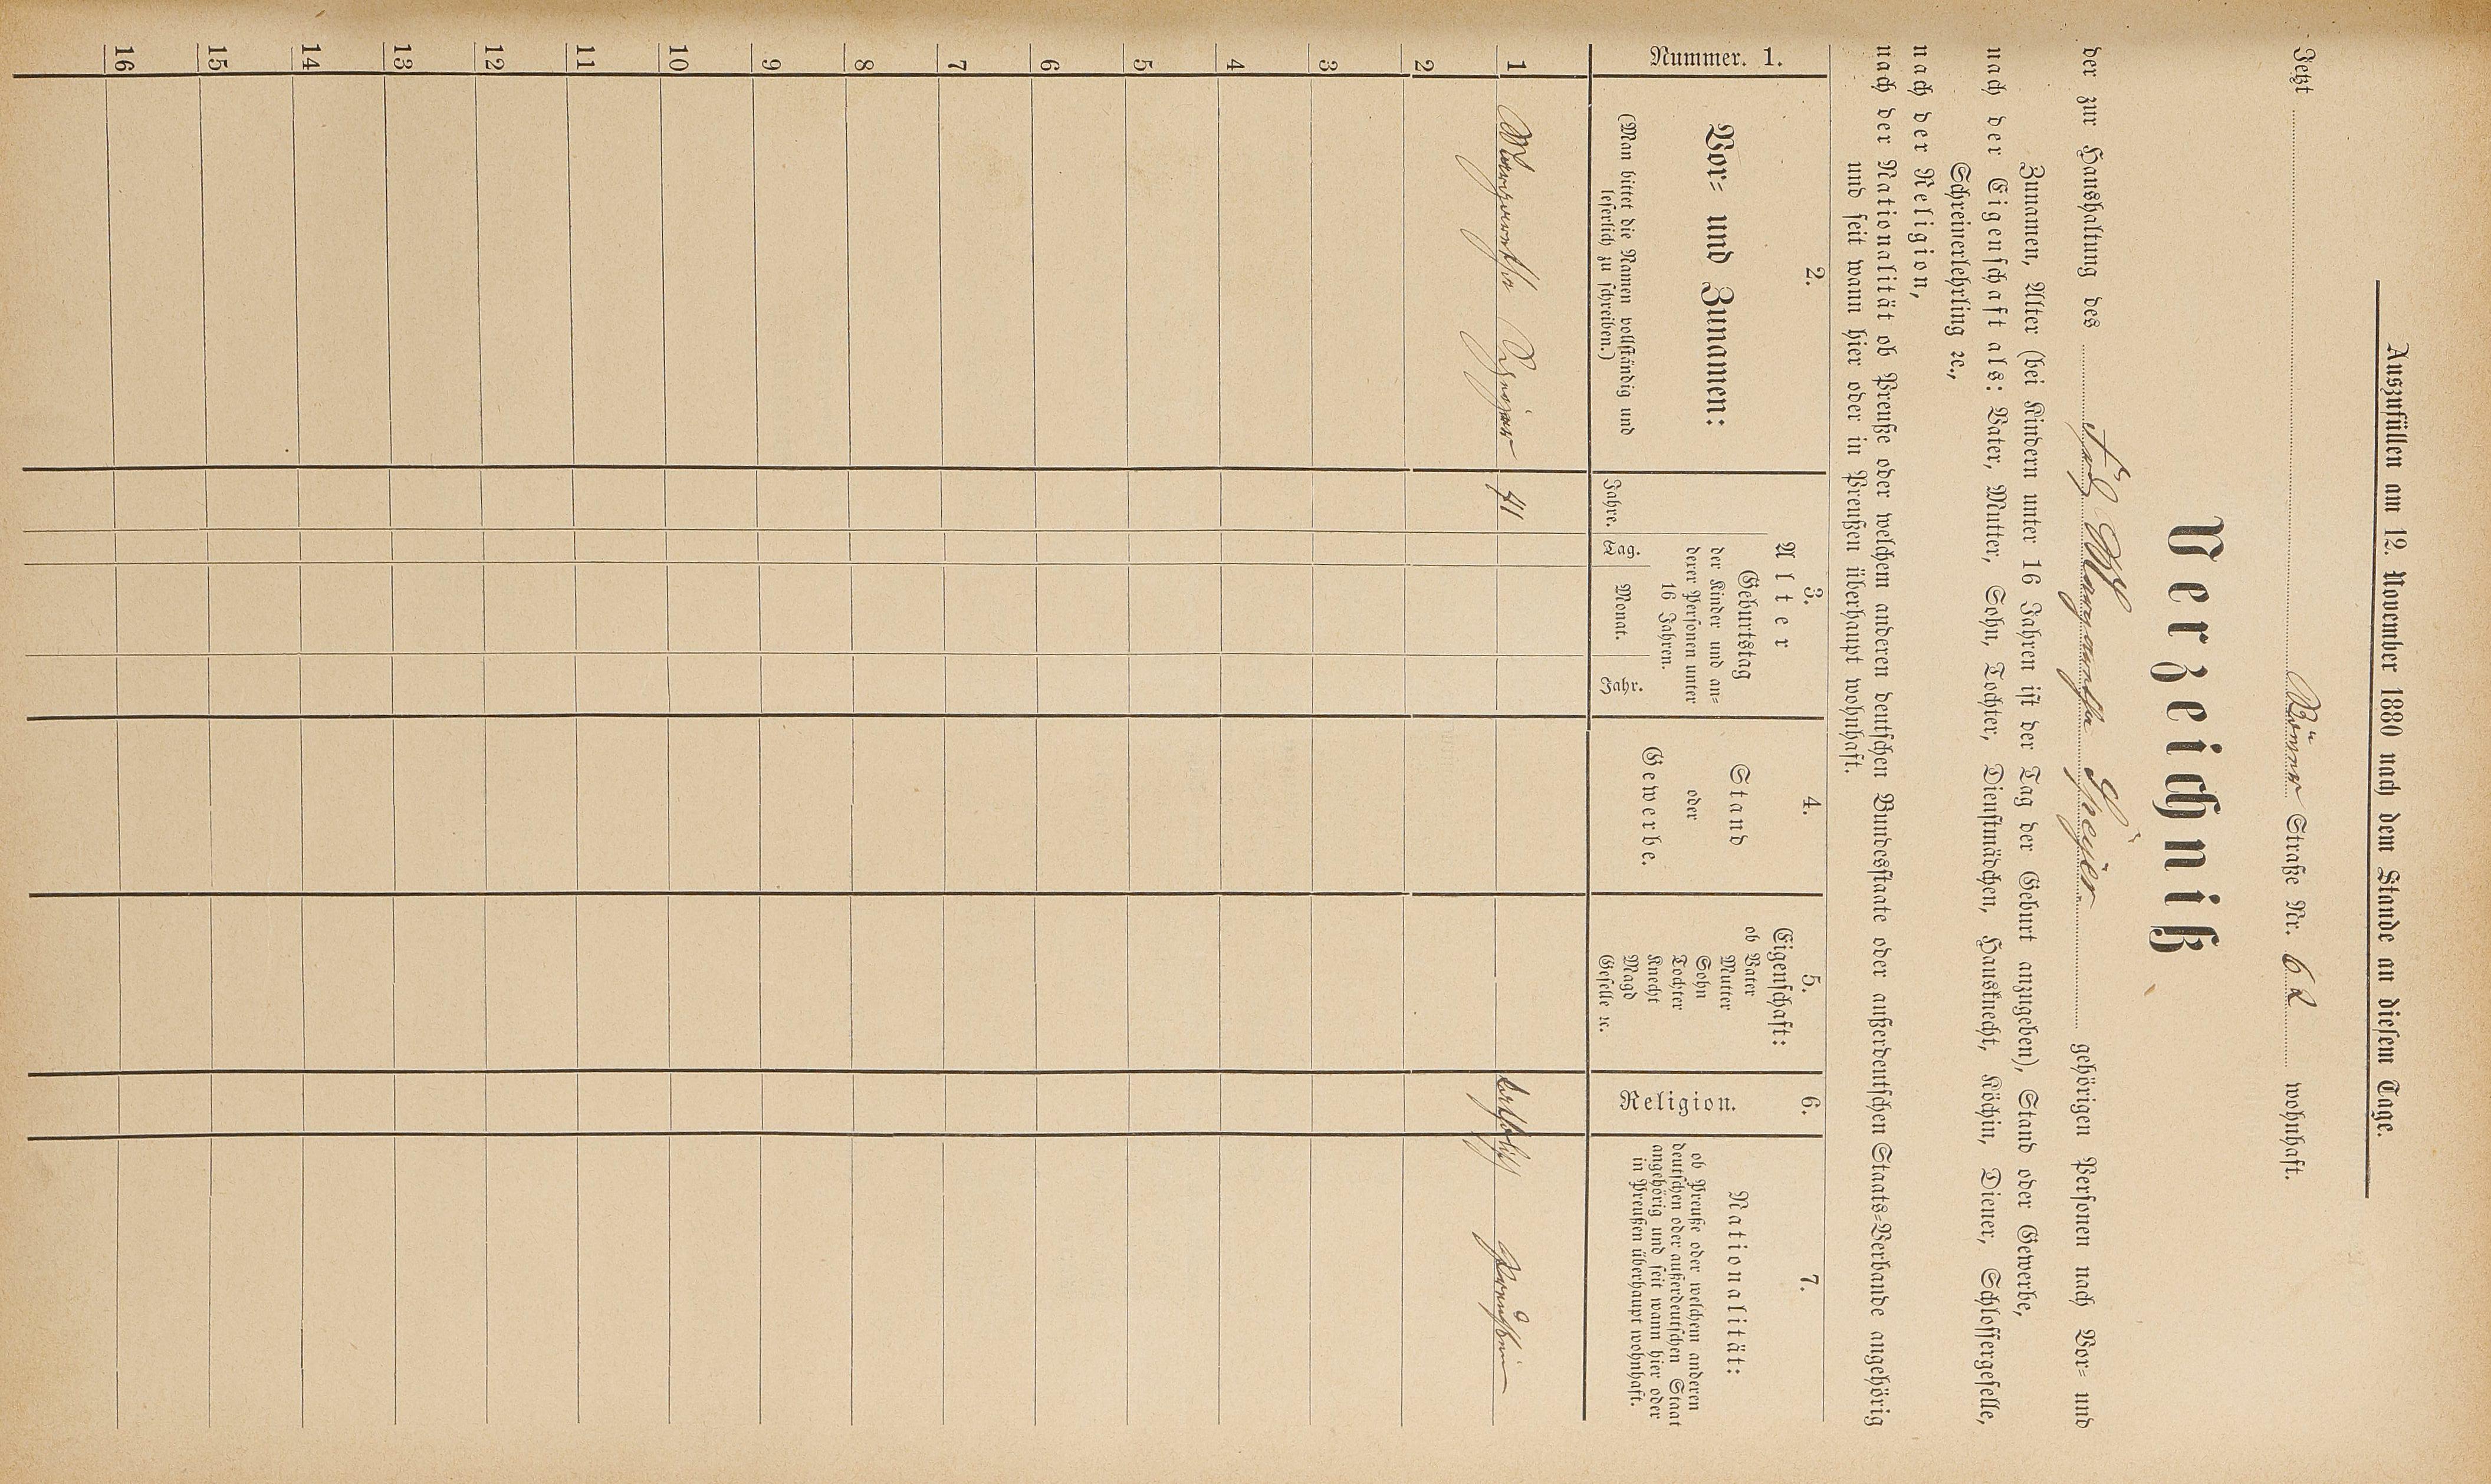 Auszufüllen am 12. November 1880 nach dem Stande an diesem Tage.
Jetzt Kölner Straße Nr. 62 wohnhaft.
Verzeichniß
der zur Haushaltung des Frl Margaretha Speyer gehörigen Personen nach Vor= und
Zunamen, Alter (bei Kindern unter 16 Jahren ist der Tag der Geburt anzugeben), Stand oder Gewerbe,
nach der Eigenschaft als: Vater, Mutter, Sohn, Tochter, Dienstmädchen, Hausknecht, Köchin, Diener, Schlossergeselle,
Schreinerlehrling ꝛc.,
nach der Religion,
nach der Nationalität ob Preuße oder welchem anderen deutschen Bundesstaate oder außerdeutschen Staats=Verbande angehörig
und seit wann hier oder in Preußen überhaupt wohnhaft.
Nummer. 1.
2.
Vor= und Zunamen:
(Man bittet die Namen vollständig und
leserlich zu schreiben.)
3.
Alter
Jahre.
Geburtstag
der Kinder und an=
derer Personen unter
16 Jahren.
Tag.
Monat.
Jahr.
4.
Stand
oder
Gewerbe.
5.
Eigenschaft:
ob Vater
Mutter
Sohn
Tochter
Knecht
Magd
Geselle ꝛc.
6.
Religion.
7.
Nationalität:
ob Preuße oder welchem anderen
deutschen oder außerdeutschen Staat
angehörig und seit wann hier oder
in Preußen überhaupt wohnhaft.
1 Margaretha Speyer 41 katholisch Preußin
2
3
4
5
6
7
8
9
10
11
12
13
14
15
16